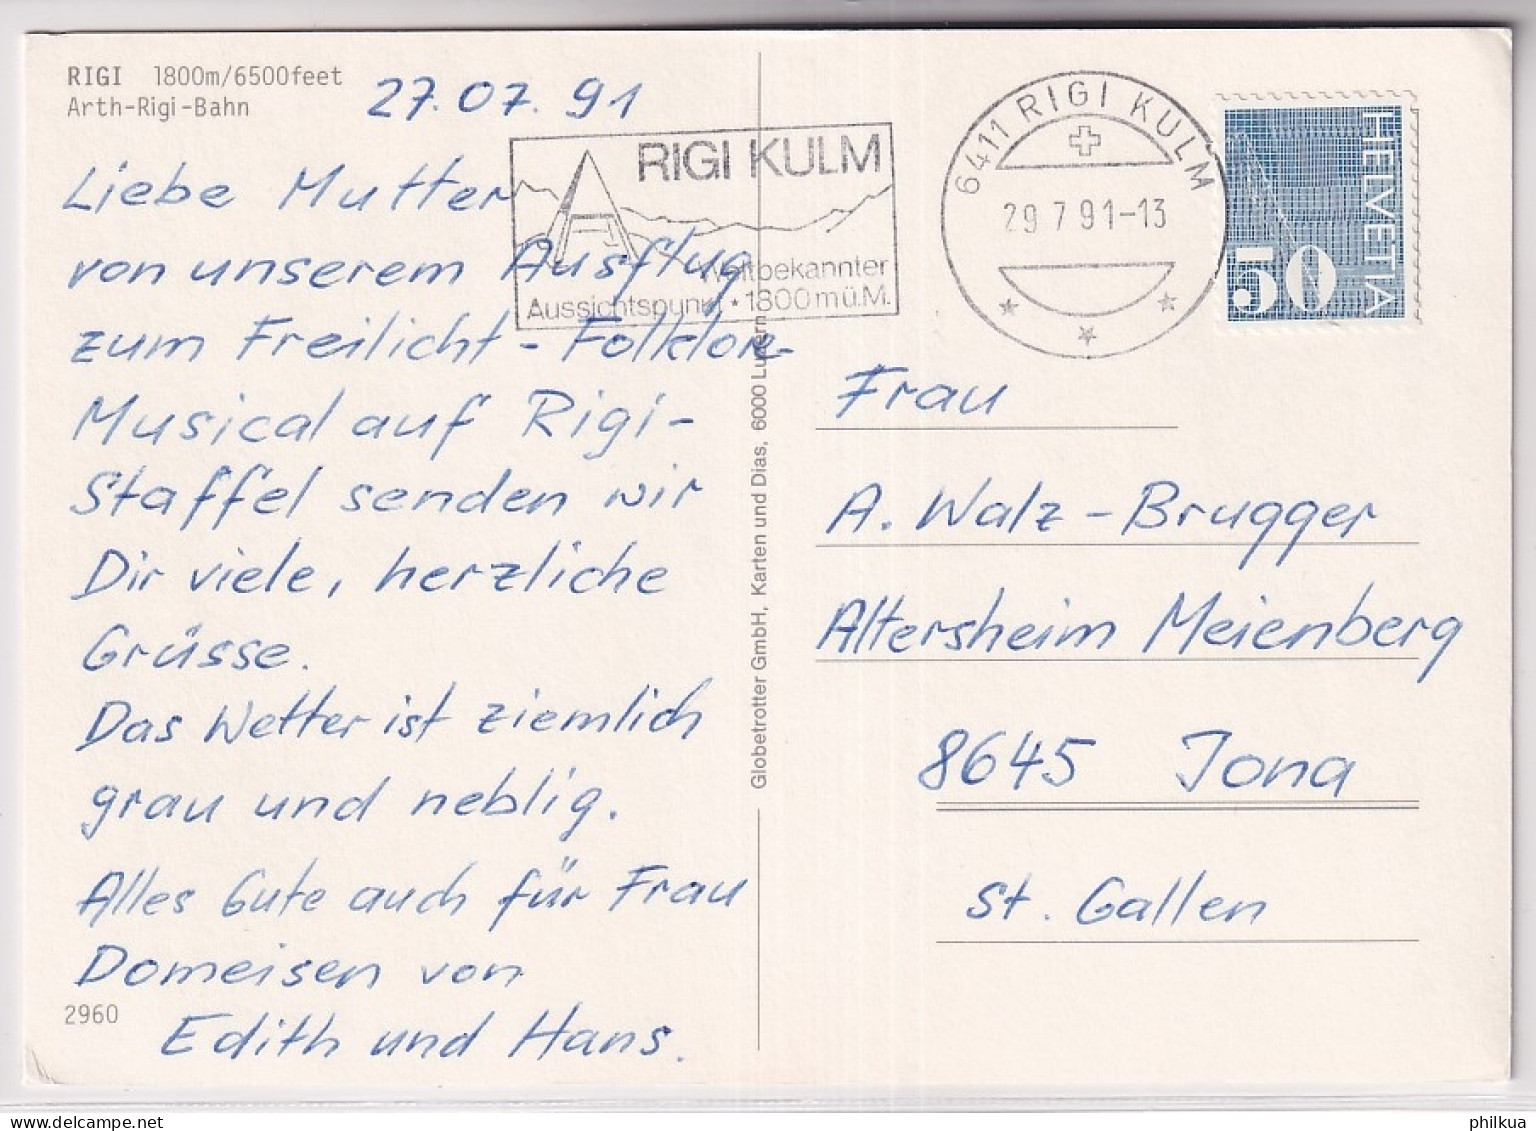 RIGI 1800m/6500feet
Arth-Rigi-Bahn
27.07.91
Liebe Mutter
von unserem Ausflug
zum Freilicht-Folklore-
Musical auf Rigi-
Staffel senden wir
Dir viele, herzliche
Grüsse.
Das Wetter ist ziemlich
grau und neblig.
Alles Gute auch für Frau
Domeisen von
Edith und Hans.
2960
RIGI KULM
Weltbekannter
Aussichtspunkt * 1800 m ü.M.
Globetrotter GmbH, Karten und Dias, 6000 Luzern
6411 RIGI KULM
29 7 91-13
HELVETIA
50
Frau
A. Walz-Brugger
Altersheim Meienberg
8645 Jona
St. Gallen
philkua.delcampe.net
philkua